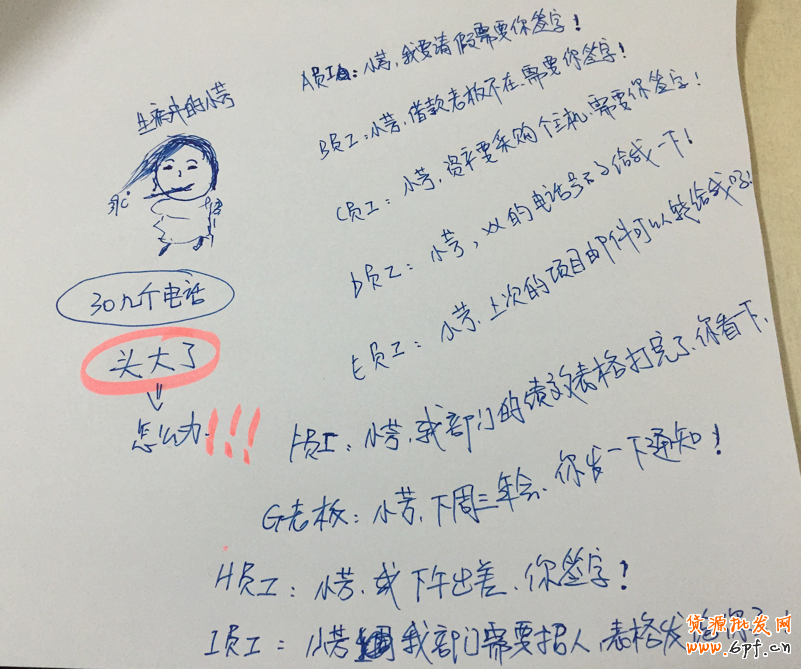 生病中的小芳
30几个电话
头大了
怎么办!!!
A员工:小芳,我要请假需要你签字!
B员工:小芳,借款老板不在、需要你签字!
C员工:小芳,要采购个主机、需要你签字!
D员工:小芳,XX的电话号给我一下!
E员工:小芳、上次的项目邮件可以转给我吗!
F员工:小芳,我部门的绩效表格打完了、你看下.
G老板:小芳,下周三年会、你发一下通知!
H员工:小芳、我下午出差、你签字!
I员工:小芳 我部门需要招人、表格发给你了!
货源批发网
www.6pf.cn